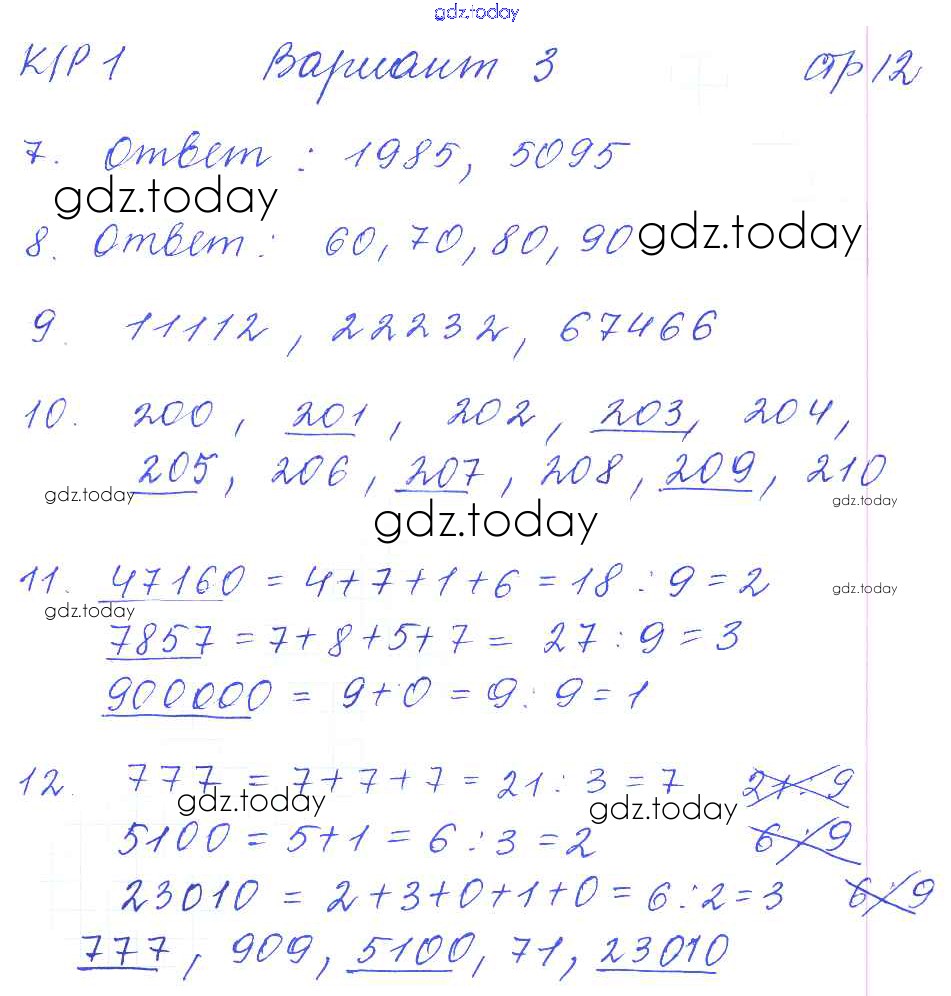 gdz.today
К/Р 1 Вариант 3 стр 12
7. Ответ : 1985, 5095
gdz.today
8. Ответ : 60, 70, 80, 90 gdz.today
9. 11112, 22232, 67466
10. 200, 201, 202, 203, 204,
205, 206, 207, 208, 209, 210
gdz.today
gdz.today
11. 47160 = 4+7+1+6 = 18 : 9 = 2
gdz.today
gdz.today
7857 = 7+8+5+7 = 27 : 9 = 3
900000 = 9+0 = 9 : 9 = 1
12. 777 = 7+7+7 = 21 : 3 = 7 21 : 9
gdz.today
gdz.today
5100 = 5+1 = 6 : 3 = 2 6 : 9
23010 = 2+3+0+1+0 = 6 : 2 = 3 6 : 9
777, 909, 5100, 71, 23010